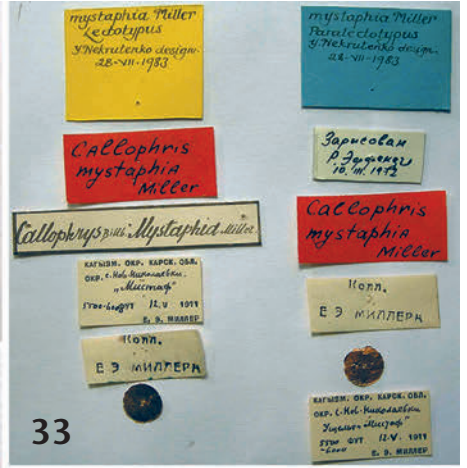 mystaphia Miller
Lectotypus
Y. Nekrutenko design.
28-VII-1983
CALLOPHRIS
MYSTAPHIA
Miller
Callophrys Billb. Mystaphia Miller.
КАГЫЗМ. ОКР. КАРСК. ОБЛ.
ОКР. с. Нов-Николаевки
„Мистаф"
5500-6000 ФУТ 12.V 1911
Е. Э. МИЛЛЕР
Колл.
Е Э МИЛЛЕРА
33
mystaphia Miller
Paralectotypus
Y. Nekrutenko design.
28-VII-1983
Зарисован
Р. Эффенди
10. III. 1972
Callophris
mystaphia
Miller
Колл.
Е Э МИЛЛЕРА
КАГЫЗМ. ОКР. КАРСК. ОБЛ.
ОКР. с. Нов-Николаевки
Ущелье „Мистаф"
5500 ФУТ 12-V. 1911
-6000 Е. Э. МИЛЛЕР